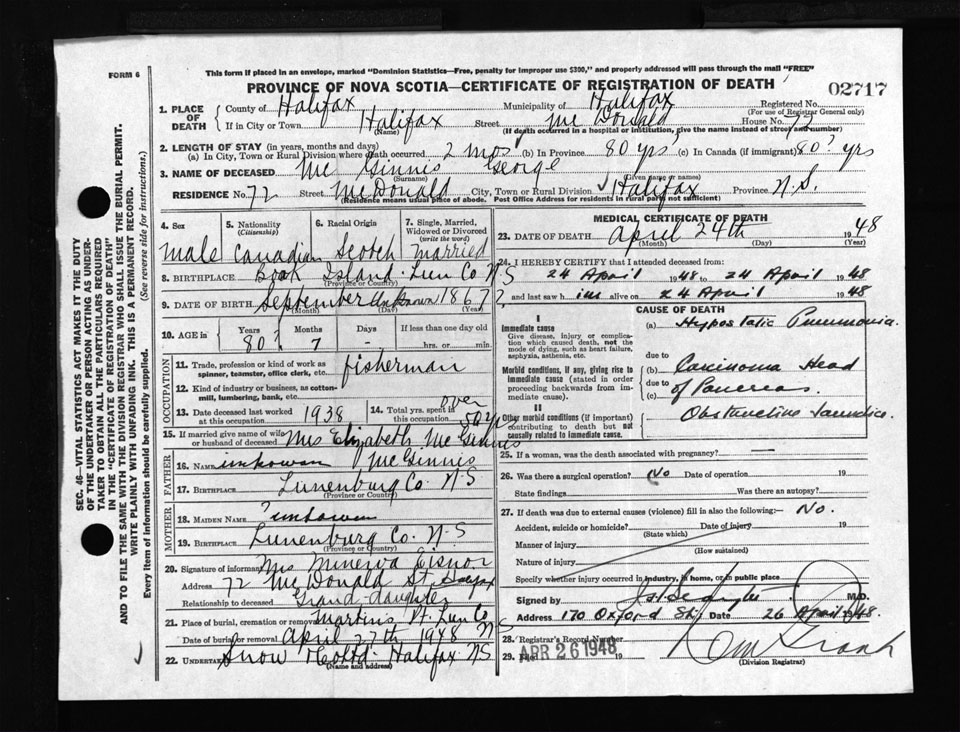 FORM 6
This form if placed in an envelope, marked "Dominion Statistics—Free, penalty for improper use $300," and properly addressed will pass through the mail "FREE"
PROVINCE OF NOVA SCOTIA—CERTIFICATE OF REGISTRATION OF DEATH
02717
SEC. 46—VITAL STATISTICS ACT MAKES IT THE DUTY
OF THE UNDERTAKER OR PERSON ACTING AS UNDER-
TAKER TO OBTAIN ALL THE PARTICULARS REQUIRED
IN THE "CERTIFICATE OF REGISTRATION OF DEATH"
AND TO FILE THE SAME WITH THE DIVISION REGISTRAR WHO SHALL ISSUE THE BURIAL PERMIT.
WRITE PLAINLY WITH UNFADING INK. THIS IS A PERMANENT RECORD.
Every item of information should be carefully supplied. (See reverse side for instructions.)
1. PLACE OF DEATH
County of Halifax Municipality of Halifax Registered No.
(For use of Registrar General only)
If in City or Town Halifax Street McDonald House No. 77
(Name) (If death occurred in a hospital or institution, give the name instead of street and number)
2. LENGTH OF STAY (in years, months and days)
(a) In City, Town or Rural Division where death occurred 2 mos (b) In Province 80 yrs? (c) In Canada (if immigrant) 80? yrs
3. NAME OF DECEASED Mc Ginnis George
(Surname) (Given name or names)
RESIDENCE No. 72 Street McDonald City, Town or Rural Division Halifax Province N.S.
(Residence means usual place of abode. Post Office Address for residents in rural parts not sufficient)
4. Sex
5. Nationality (Citizenship)
6. Racial Origin
7. Single, Married, Widowed or Divorced (write the word)
male Canadian Scotch married
8. BIRTHPLACE Book Island Lun Co N S
(Province or County)
9. DATE OF BIRTH September unknown 1867?
(Month) (Day) (Year)
10. AGE in Years Months Days If less than one day old
80? 7 - hrs. or min.
OCCUPATION
11. Trade, profession or kind of work as spinner, teamster, office clerk, etc. fisherman
12. Kind of industry or business, as cotton-mill, lumbering, bank, etc.
13. Date deceased last worked at this occupation 1938
14. Total yrs. spent in this occupation over 50 yrs
15. If married give name of wife or husband of deceased Mrs Elizabeth McGinnis
FATHER
16. Name unknown McGinnis
17. BIRTHPLACE Lunenburg Co. N.S
(Province or County)
MOTHER
18. MAIDEN NAME ? unknown
19. BIRTHPLACE Lunenburg Co. N.S
(Province or County)
20. Signature of informant Mrs Minerva Eisnor
Address 72 McDonald St. Halifax
Relationship to deceased Grand-daughter
21. Place of burial, cremation or removal Martins Pt. Lun Co N S
Date of burial or removal April 27th 1948
22. UNDERTAKER Snow Co Ltd. Halifax NS
(Name and address)
MEDICAL CERTIFICATE OF DEATH
23. DATE OF DEATH April 24th 1948
(Month) (Day) (Year)
24. I HEREBY CERTIFY that I attended deceased from:
24 April 1948 to 24 April 1948
and last saw him alive on 24 April 1948
CAUSE OF DEATH
I
Immediate cause
Give disease, injury or complication which caused death, not the mode of dying, such as heart failure, asphyxia, asthenia, etc.
(a) Hypostatic Pneumonia.
due to
Morbid conditions, if any, giving rise to immediate cause (stated in order proceeding backwards from immediate cause).
(b) Carcinoma Head
due to
(c) of Pancreas
II
Other morbid conditions (if important) contributing to death but not causally related to immediate cause.
Obstructive Jaundice
25. If a woman, was the death associated with pregnancy? —
26. Was there a surgical operation? No Date of operation 19
State findings Was there an autopsy?
27. If death was due to external causes (violence) fill in also the following:— No.
Accident, suicide or homicide? Date of injury 19
(State which)
Manner of injury
(How sustained)
Nature of injury
Specify whether injury occurred in industry, in home, or in public place
Signed by M.D.
Address 170 Oxford St. Date 26 April 1948.
28. Registrar's Record Number
29. Filed APR 26 1948 19
(Division Registrar)